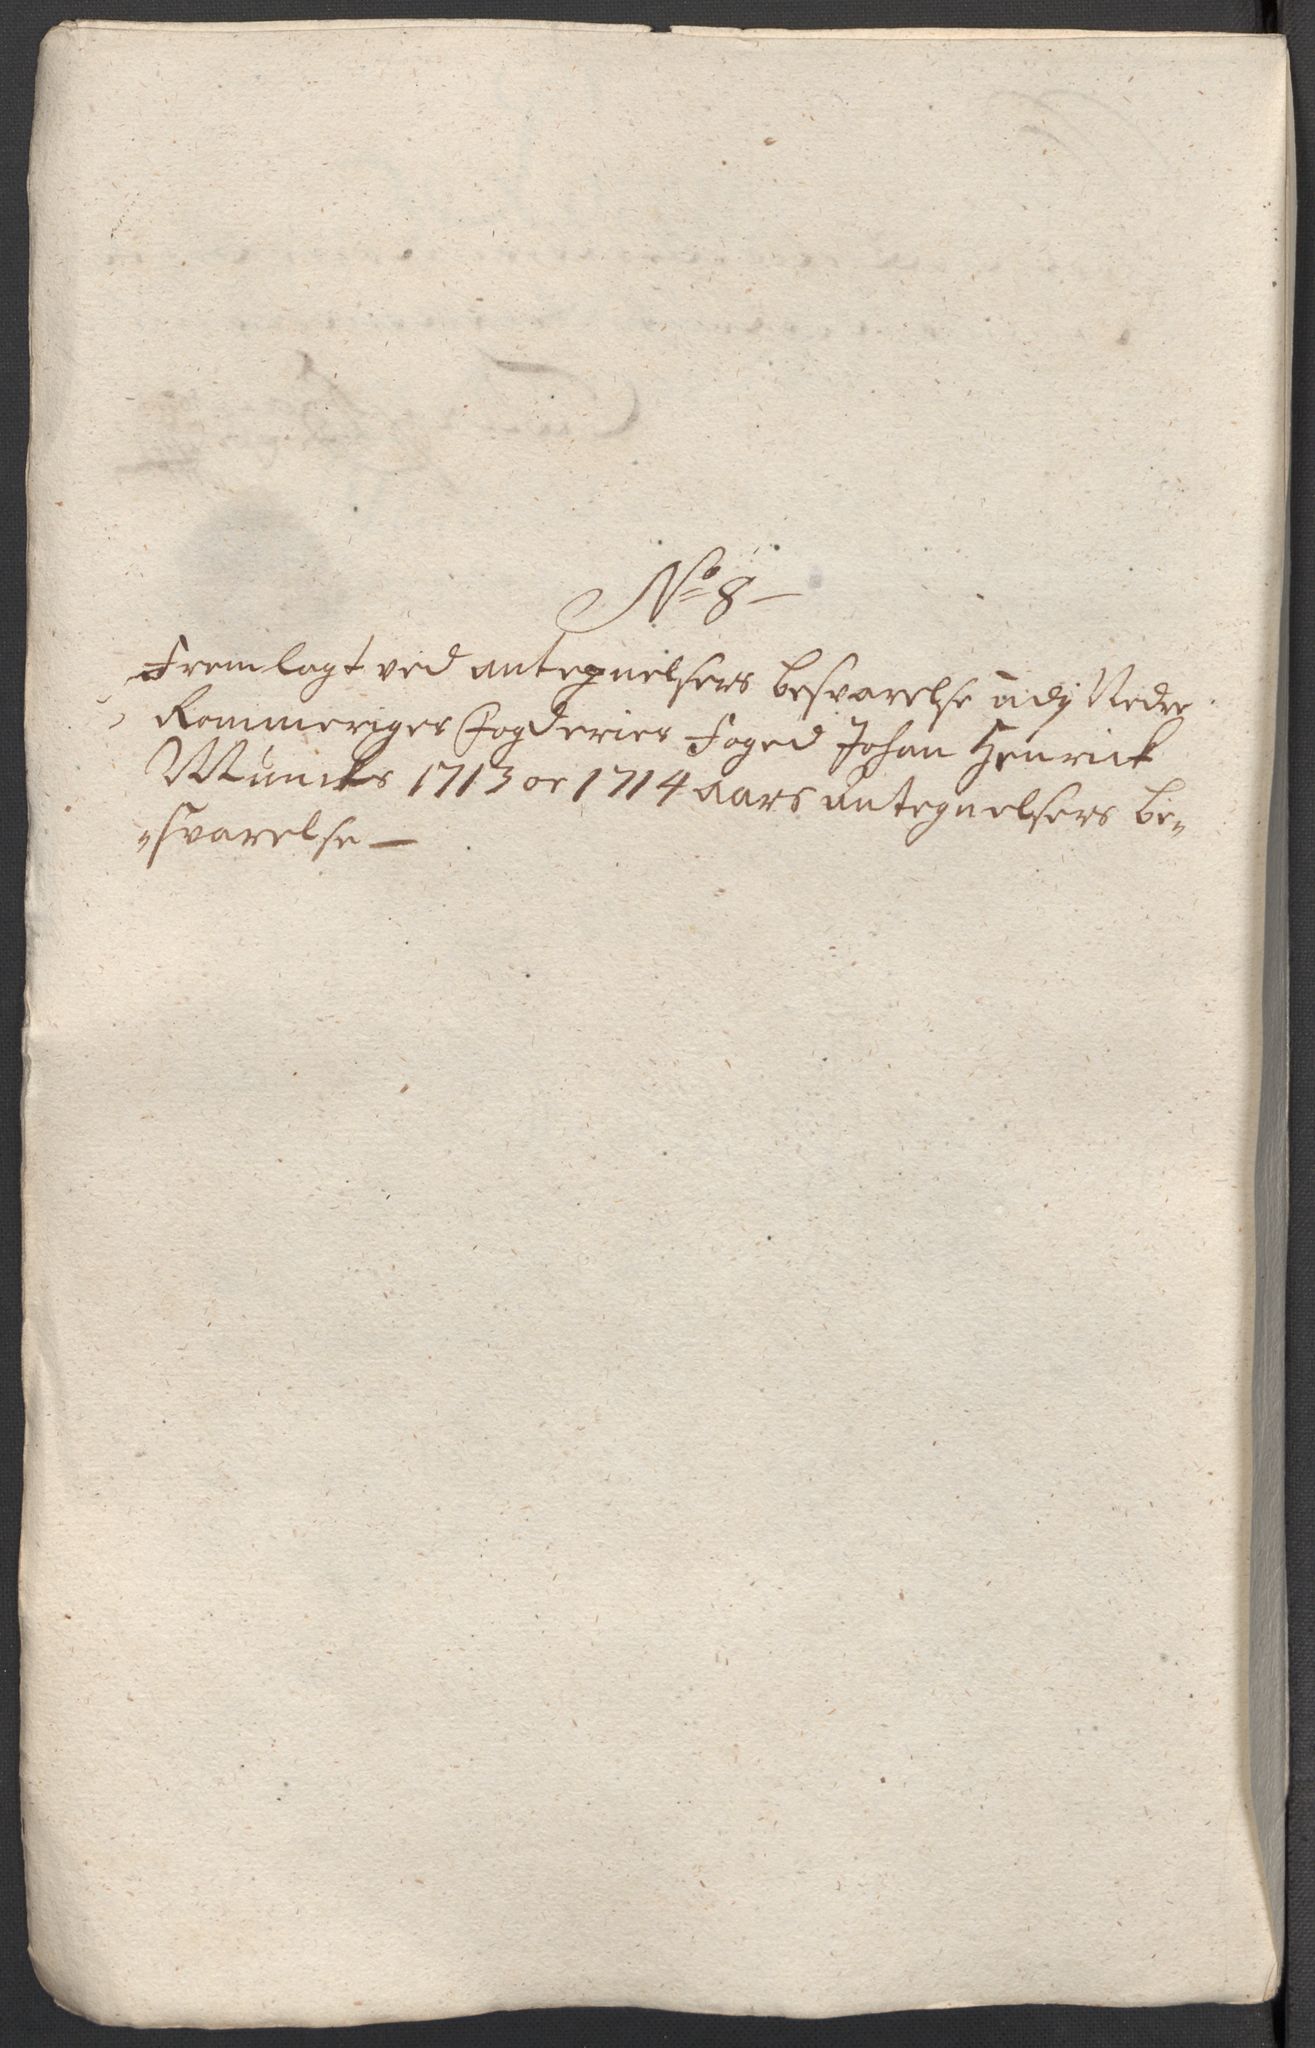 No 8 –
Fremlagt ved antegnelsers besvarelse udj Nedre
Rommeriges Fogderies Foged Johan Henrick
Muncks 1713 or 1714 aars antegnelsers be„
„svarelse –